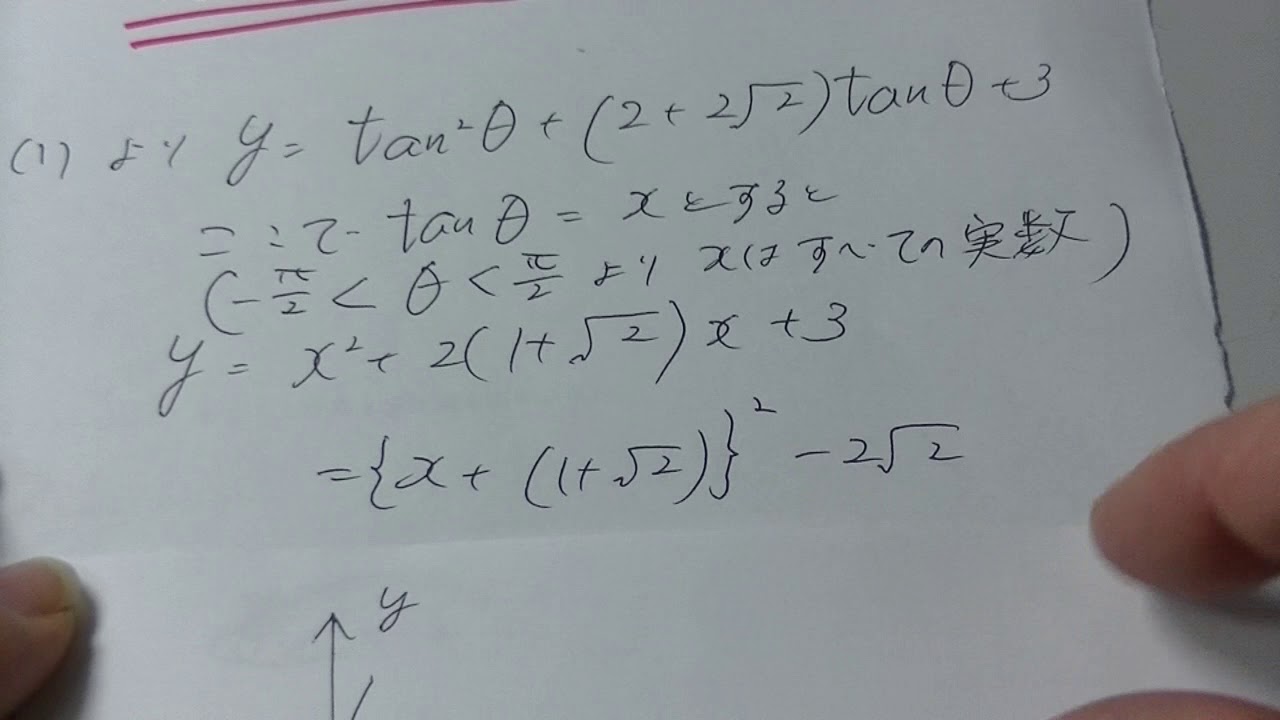 (1) より y = tan²θ + (2 + 2√2)tanθ + 3
ここで tanθ = x とすると
(-π/2 < θ < π/2 より xはすべての実数)
y = x² + 2(1+√2)x + 3
= {x + (1+√2)}² - 2√2
y